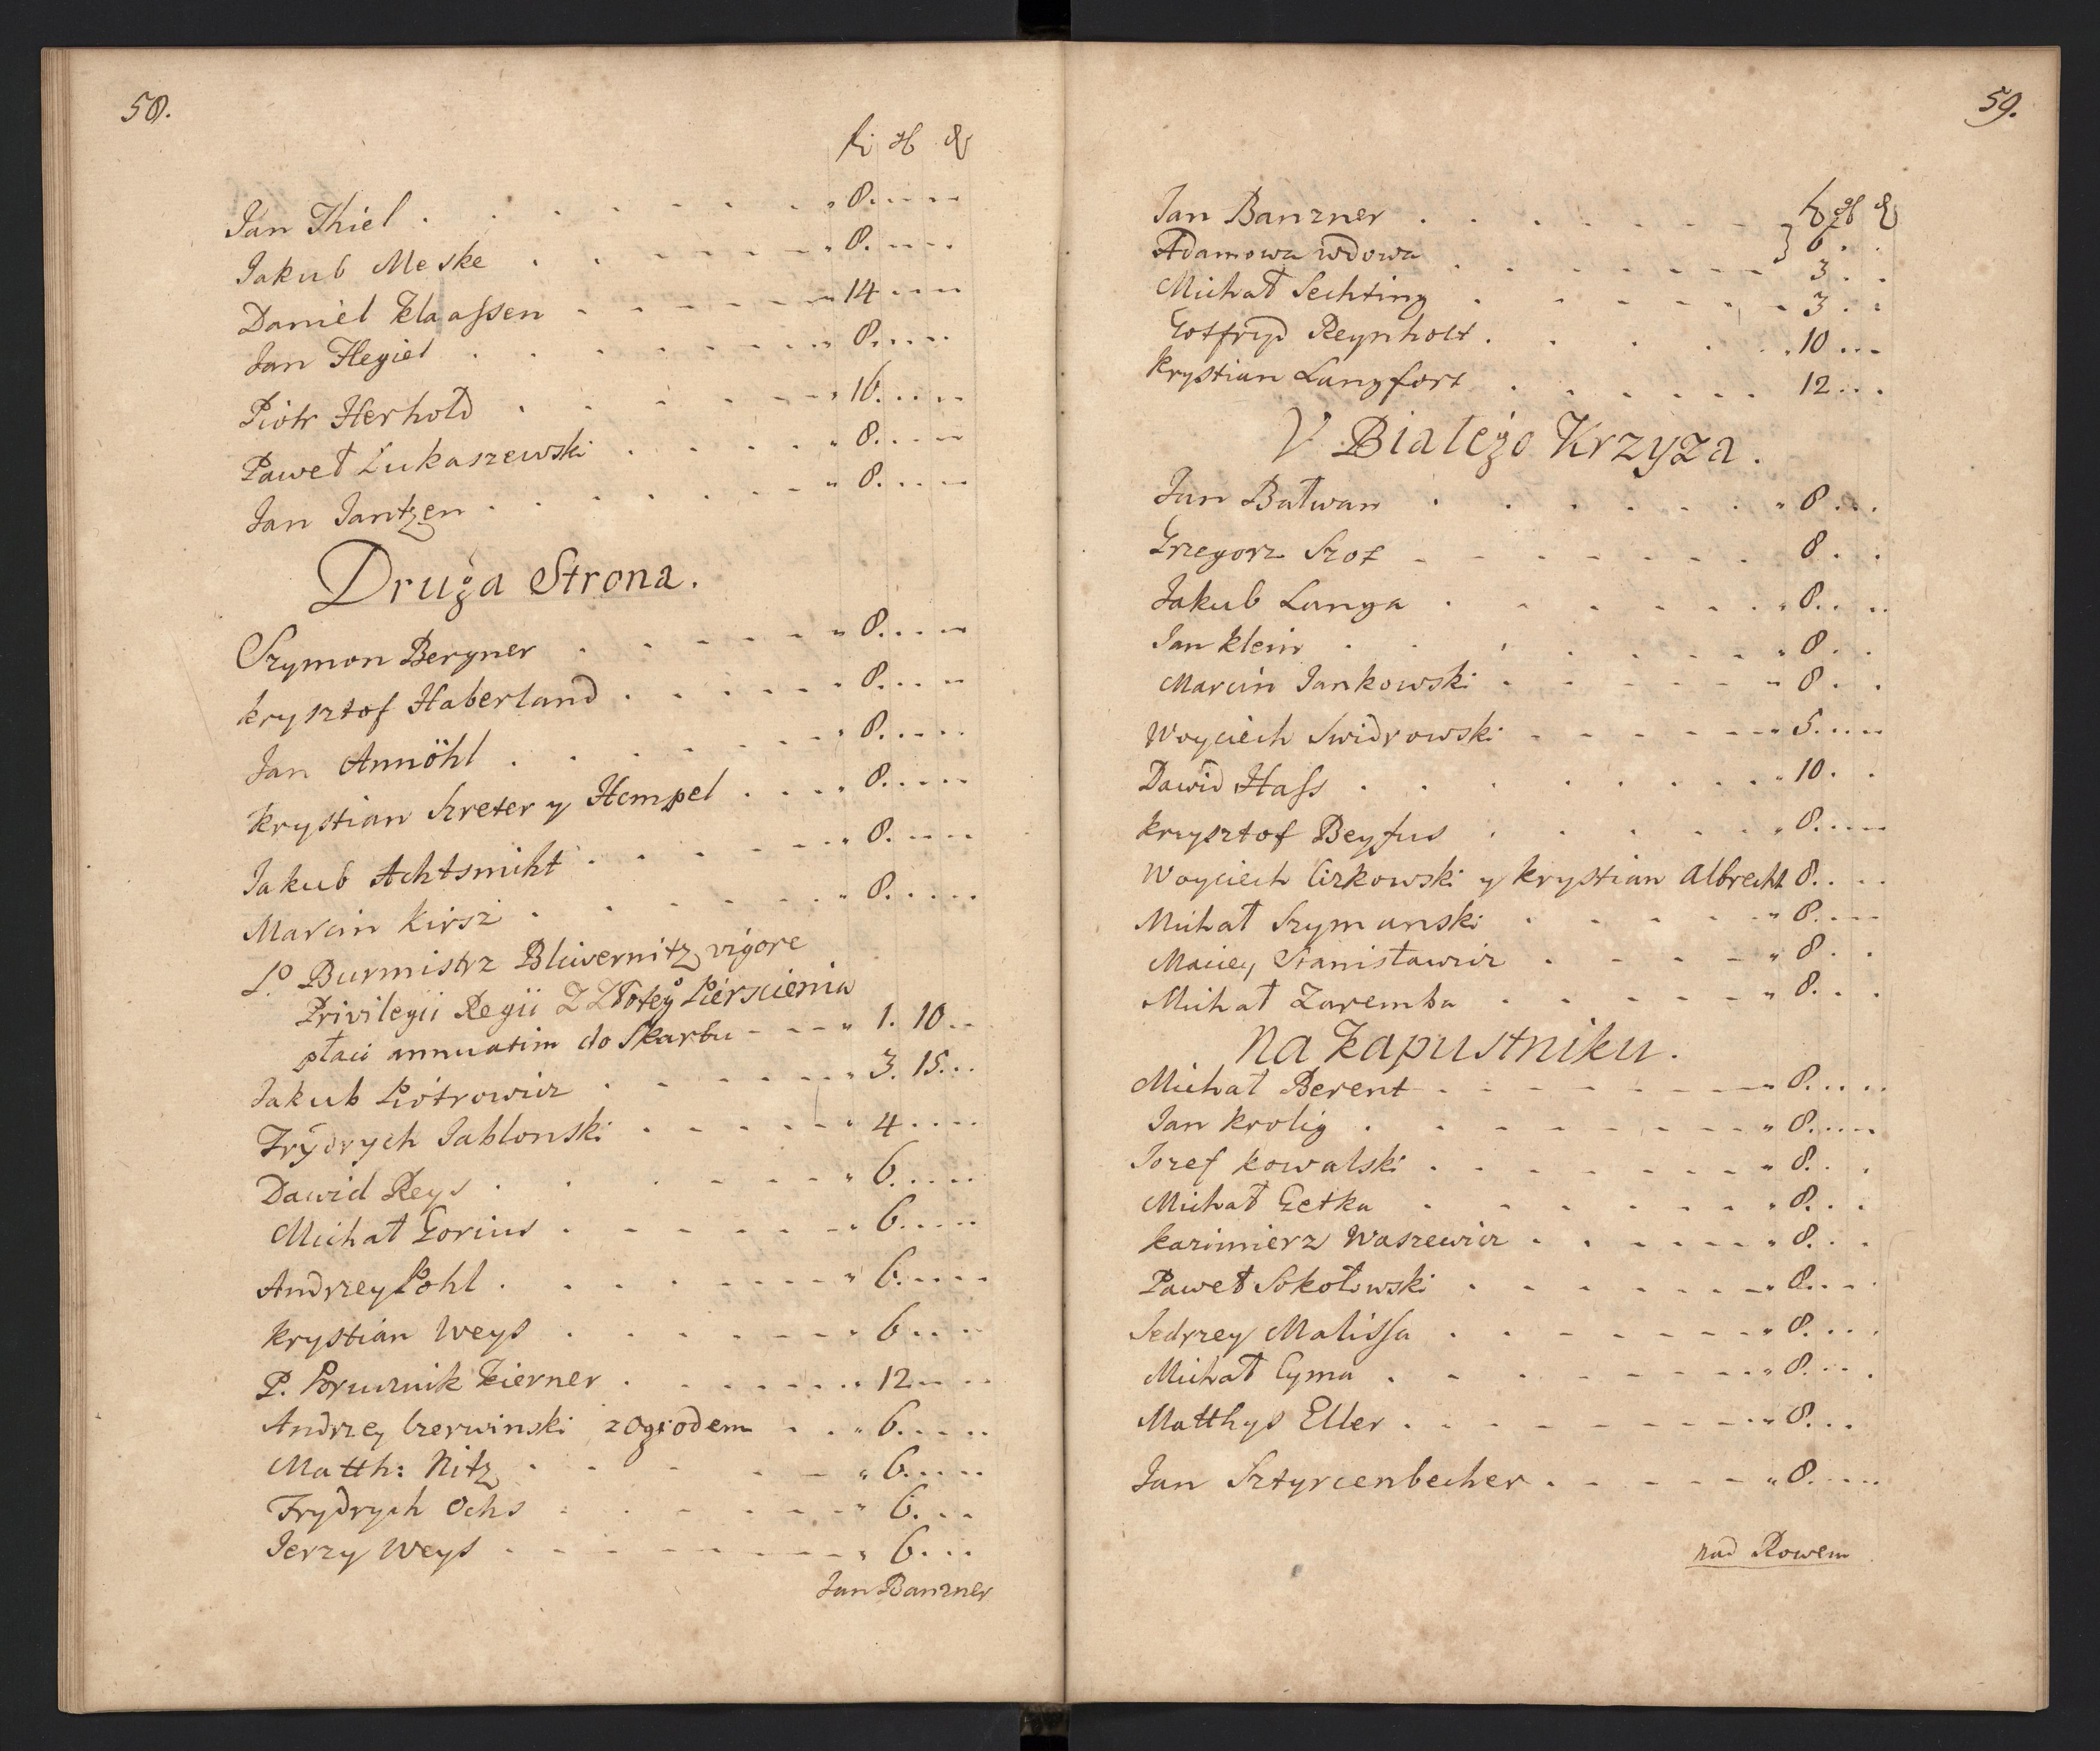 58.
fl gl d
Jan Thiel . . . . . . . . 8. . . .
Jakub Meske . . . . . . 8. . . .
Daniel Klaassen . . . . . 14 . . .
Jan Flegiel . . . . . . . 8. . . .
Piotr Herhold . . . . . . 16. . . .
Paweł Łukaszewski . . . . . 8. . . .
Jan Jantzen . . . . . . . 8. . . .
Druga Strona.
Szymon Bergner . . . . . . 8. . . .
Krysztof Haberland . . . . . . 8. . . .
Jan Annöhl . . . . . . . 8. . . .
Krystian Szreter y Hempel . . . . 8. . . .
Jakub Achtsmiht . . . . . . 8. . . .
Marcin Kirsz . . . . . . . 8. . . .
P. Burmistrz Bliwernitz, vigore
Privilegii Regii Z Złotey Pierscienia
płaci annuatim do Skarbu - - - 1. 10 . .
Jakub Piotrowicz . . . . . . 3. 15. . .
Frydrych Jablonski . . . . . . 4. . . .
Dawid Reys . . . . . . . 6. . . .
Michał Gorius . . . . . . 6. . . .
Andrzey Pohl . . . . . . . 6. . . .
Krystian Weys . . . . . . . 6. . . .
P. Porucznik Kierner . . . . . . 12 . . .
Andrzey Czerwinski z ogrodem . . . 6. . . .
Matth: Nitz . . . . . . 6. . . .
Frydrych Ochs . . . . . . 6. . .
Jerzy Weys . . . . . . . 6. . .
Jan Banzner
59.
fl gl d
Jan Banzner . . . . . . . 6 . .
Adamowa wdowa . . . . . . . 3 . .
Michał Sechting . . . . . . 3 . .
Gotfryd Reynholt . . . . . 10 . . .
Krystian Langfort . . . . . . 12 . . .
V Białego Krzyza.
Jan Bałwan . . . . . . . 8 . . .
Grzegorz Szof . . . . . . . 8 . .
Jakub Langa . . . . . . . 8. . . .
Jan Klein . . . . . . . 8 . .
Marcin Jankowski . . . . . . 8 . .
Woyciech Swidrowski . . . . . . 5. . . .
Dawid Hass . . . . . . . 10 . .
Krzysztof Beyfus . . . . . . 8. . . .
Woyciech Cirkowski y Krystian Albrecht 8. . . .
Michał Szymanski . . . . . . 8. . . .
Maciey Stanisławicz . . . . . 8 . .
Michał Zaremba . . . . . . 8. . .
Na Kapustniku.
Michał Berent . . . . . . . 8. . . .
Jan Krolig . . . . . . . 8. . . .
Jozef Kowalski . . . . . . . 8. . .
Michał Getka . . . . . . . 8. . .
Kazimierz Waszewicz . . . . . . 8. . .
Paweł Sokołowski . . . . . . 8. . . .
Jedrzey Malissa . . . . . . . 8. . . .
Michał Cyma . . . . . . . 8. . . .
Matthys Eller . . . . . . . 8. . .
Jan Sztyrcenbecher . . . . . . 8. . . .
nad Rowem